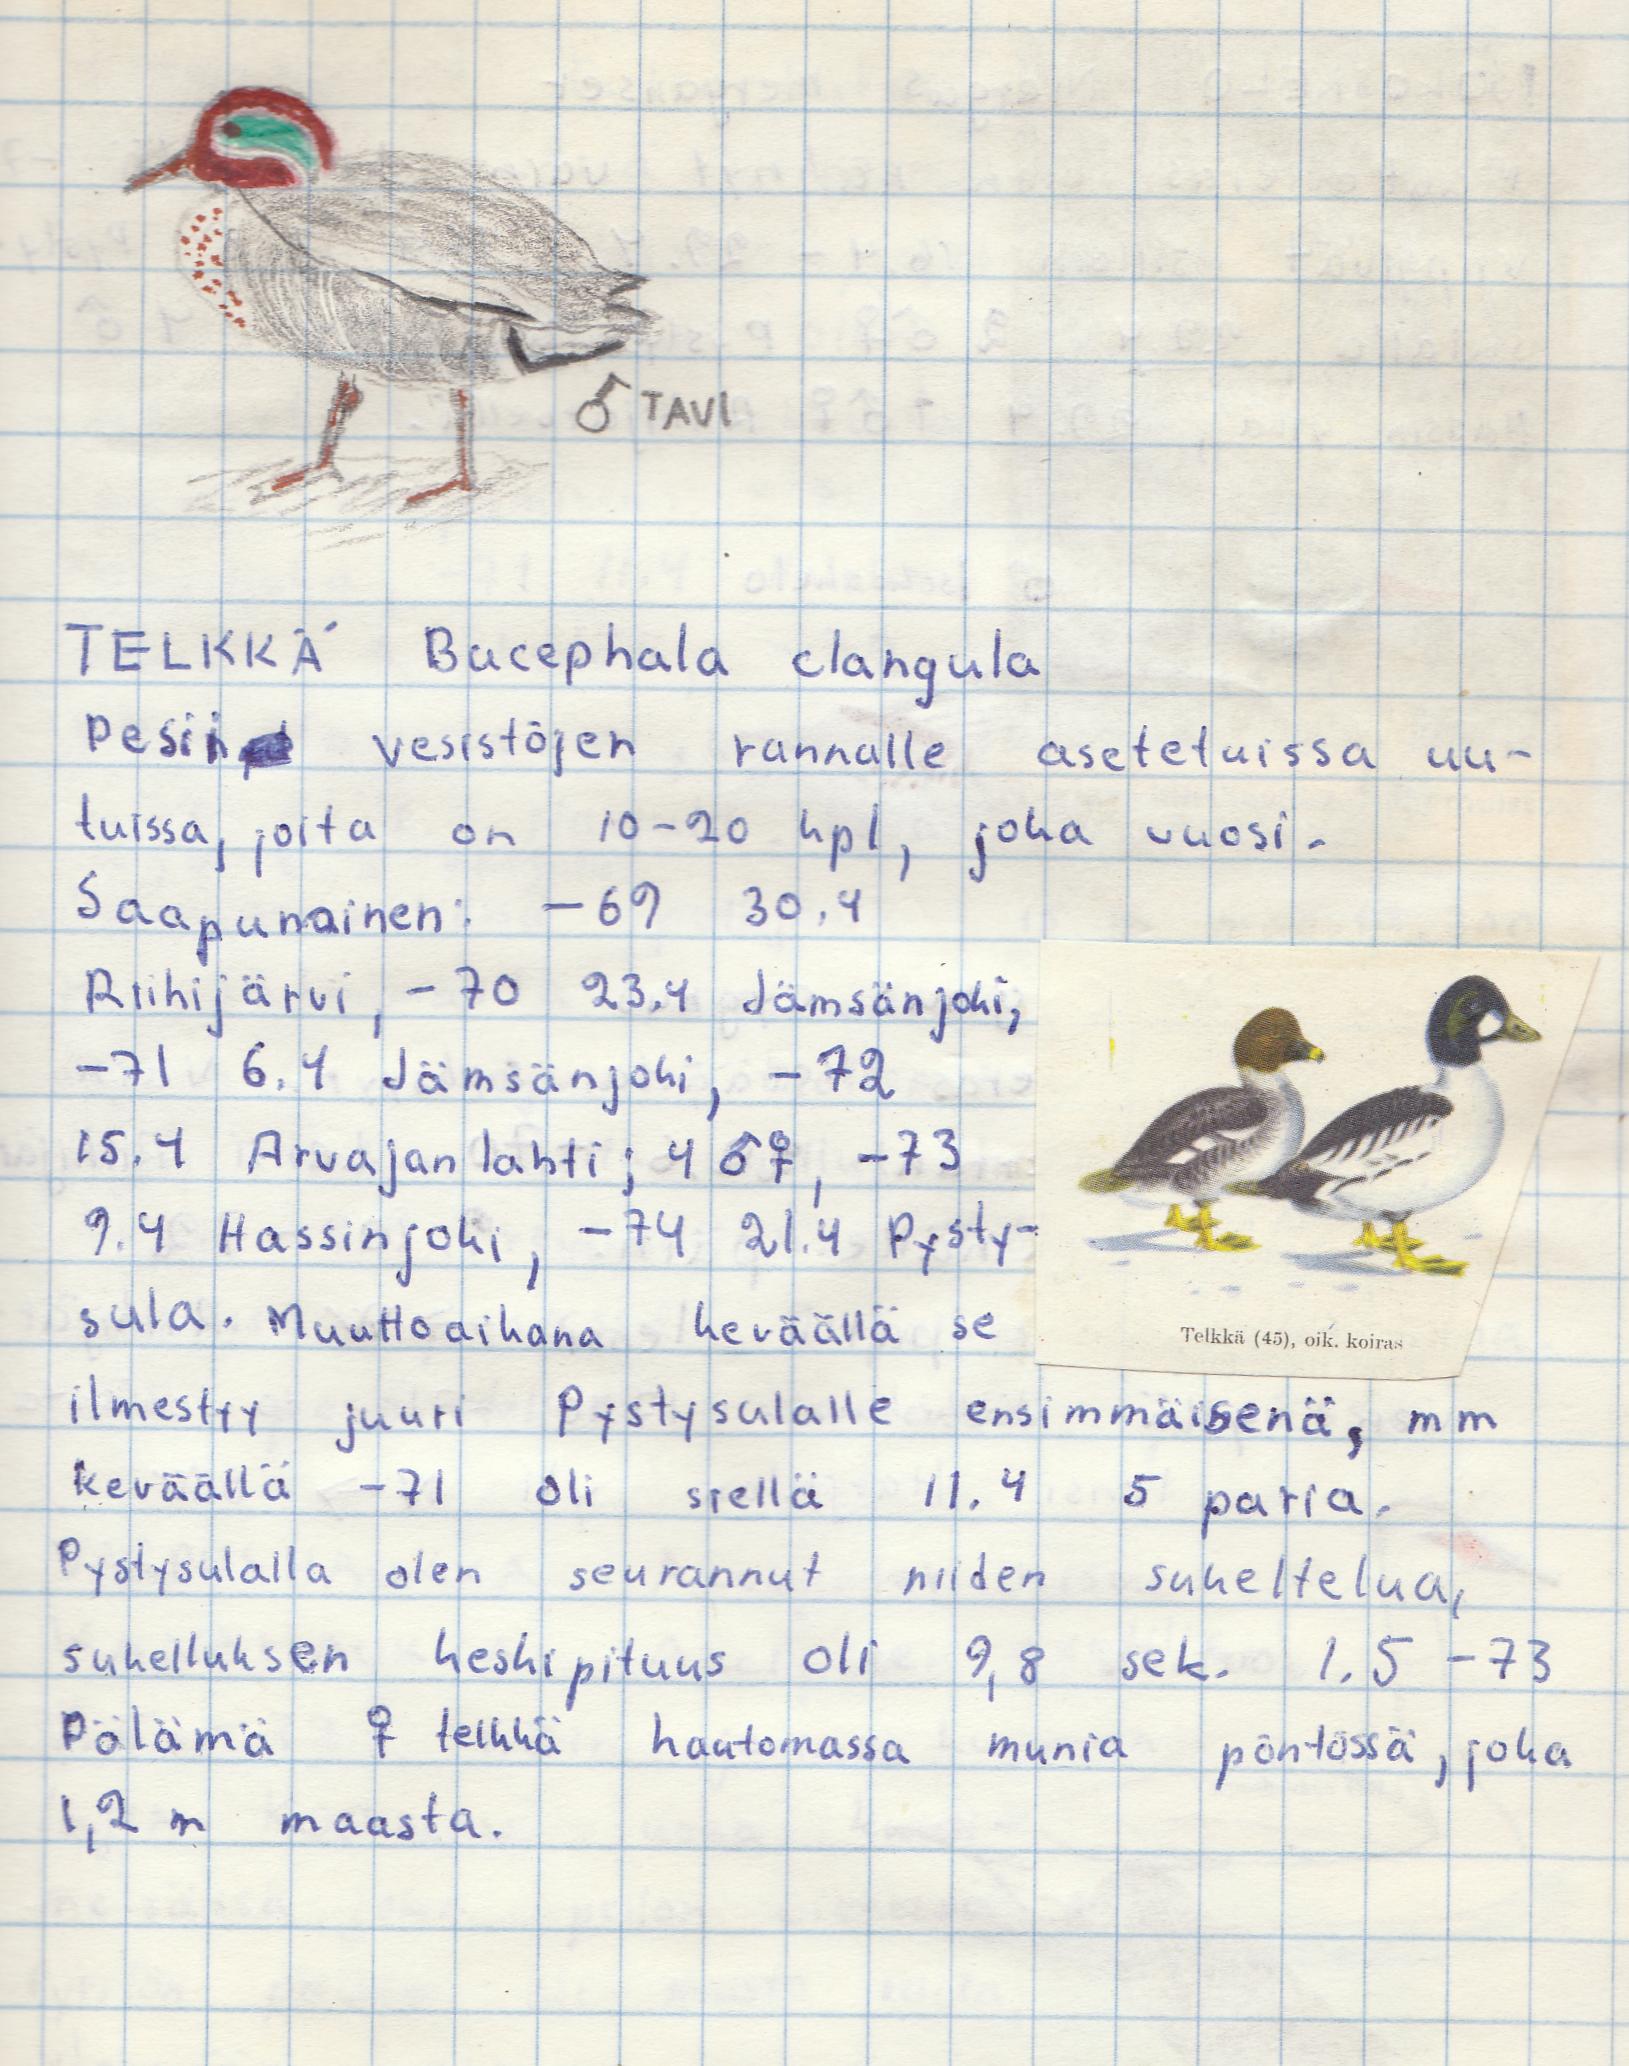 ♂ TAVI
TELKKÄ Bucephala clangula
Pesii vesistöjen rannalle asetetuissa uu-
tuissa, joita on 10-20 kpl, joka vuosi.
Saapuminen: -69 30.4
Riihijärvi, -70 23.4 Jämsänjoki,
-71 6.4 Jämsänjoki, -72
15.4 Arvajanlahti; 4 ♂♀, -73
9.4 Hassinjoki, -74 21.4 Pysty-
sula. Muuttoaikana keväällä se
ilmestyy juuri Pystysulalle ensimmäisenä, mm
keväällä -71 oli siellä 11.4 5 paria.
Pystysulalla olen seurannut niiden sukeltelua,
sukelluksen keskipituus oli 9,8 sek. 1.5 -73
Pölämä ♀ telkkä hautomassa munia pöntössä, joka
1,2 m maasta.
Telkkä (45), oik. koiras